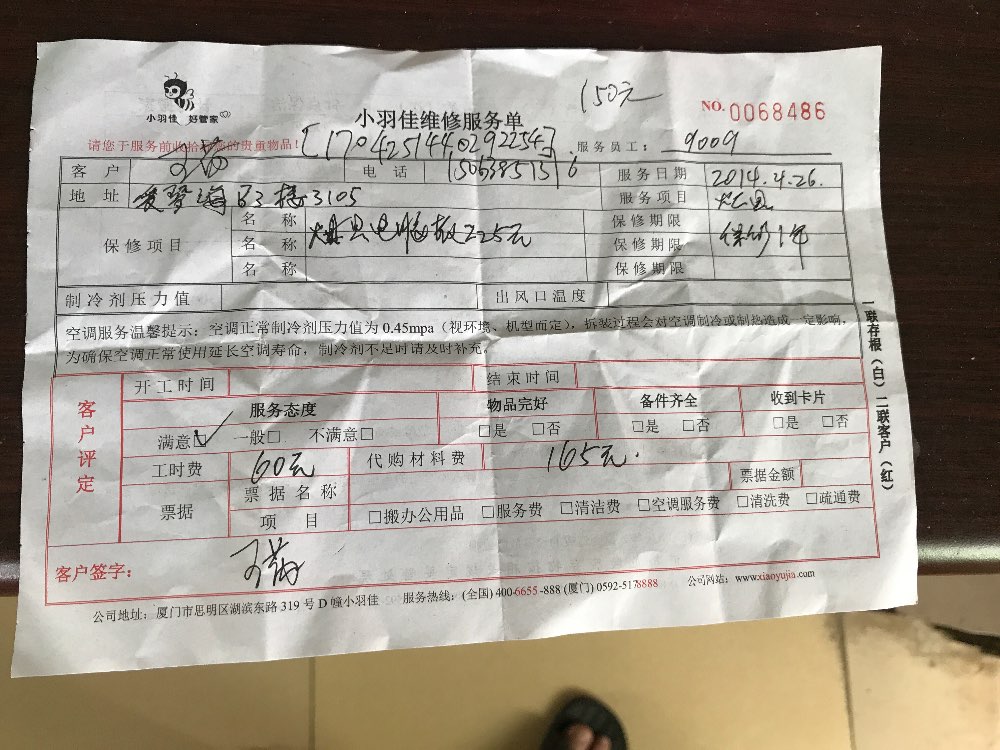 小羽佳 好管家
150元
NO. 0068486
小羽佳维修服务单
请您于服务前收拾好您的贵重物品！
[1704251440292254]
服务员工： 9009
客户 电话 服务日期 2014.4.26.
地址 爱琴海B3楼3105 服务项目
保修项目 名称 225元 保修期限
名称 保修期限 保修1年
名称 保修期限
制冷剂压力值 出风口温度
空调服务温馨提示：空调正常制冷剂压力值为 0.45mpa（视环境、机型而定），拆装过程会对空调制冷或制热造成一定影响，
为确保空调正常使用延长空调寿命，制冷剂不足时请及时补充。
一联存根（白）二联客户（红）
客户评定
开工时间 结束时间
服务态度 物品完好 备件齐全 收到卡片
满意☑ 一般□ 不满意□ □是 □否 □是 □否 □是 □否
工时费 60元 代购材料费 165元.
票据 票据名称 票据金额
项目 □搬办公用品 □服务费 □清洁费 □空调服务费 □清洗费 □疏通费
客户签字：
公司地址：厦门市思明区湖滨东路 319 号 D 幢小羽佳 服务热线：(全国) 400-6655-888 (厦门) 0592-5178888 公司网站：www.xiaoyujia.com